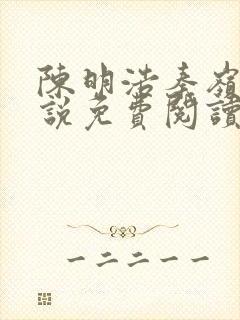 陳明浩秦嶺
說免費閱讀
一二二一一